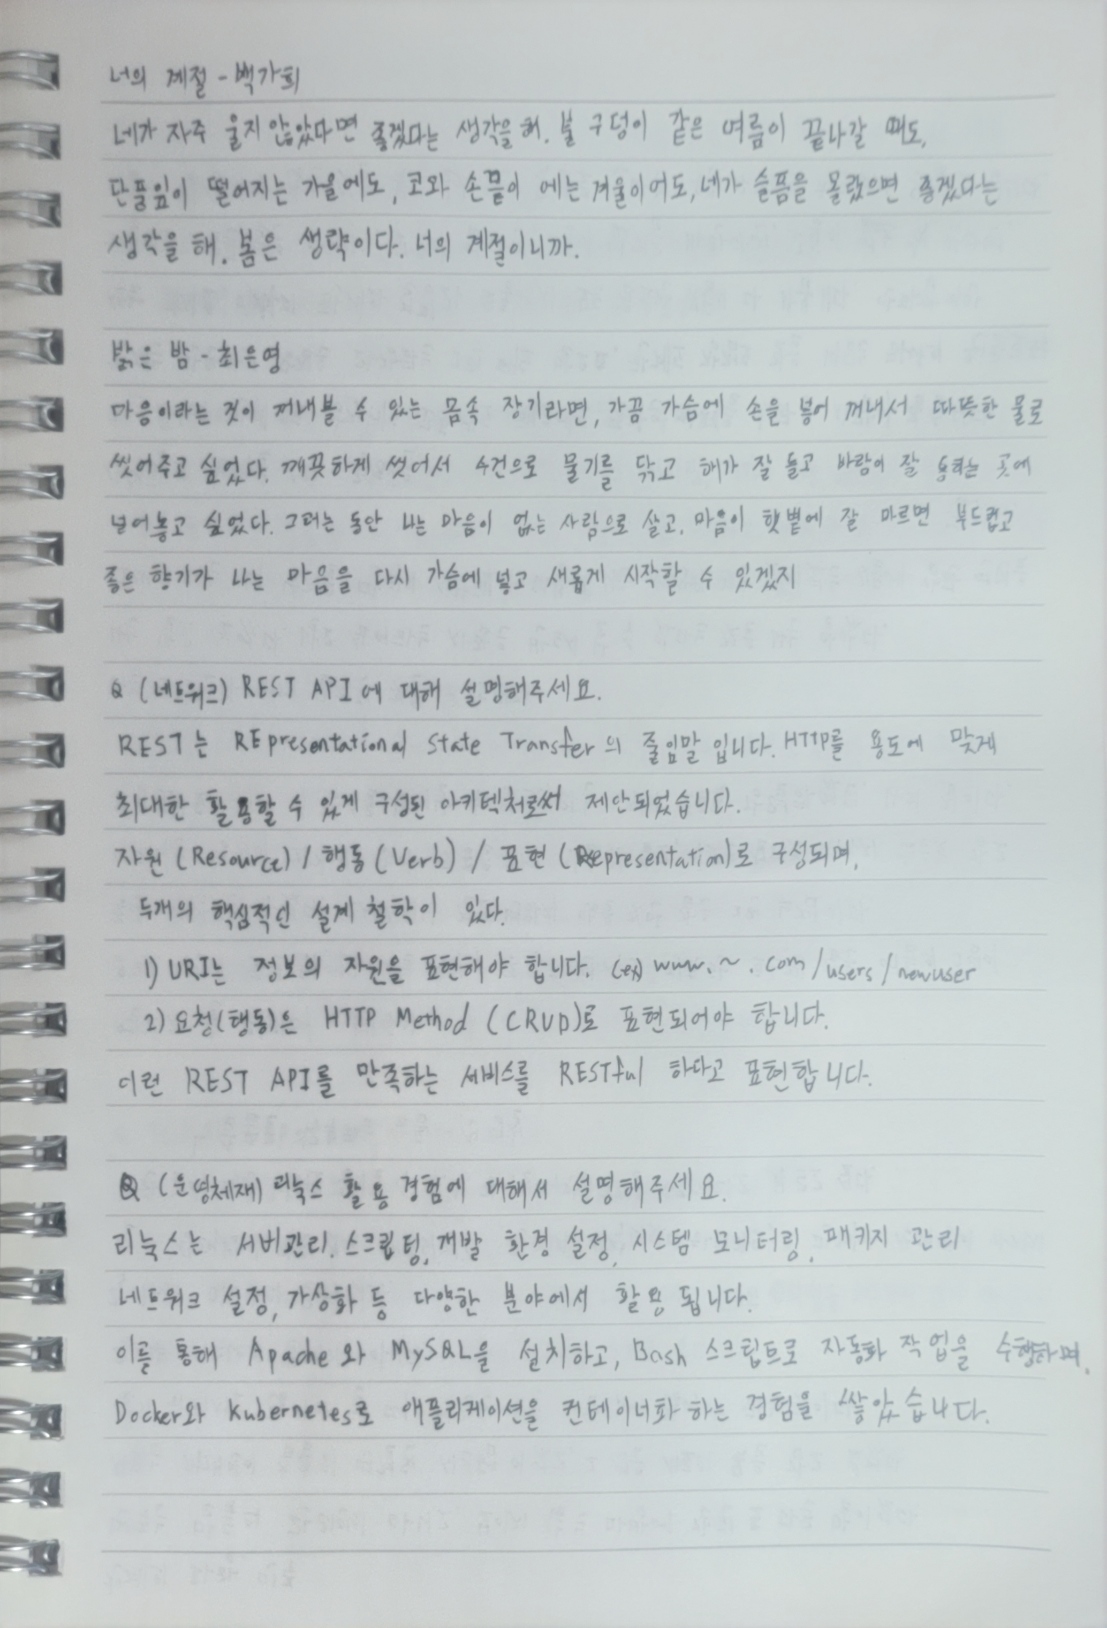 너의 계절 - 백가희
네가 자주 울지 않았다면 좋겠다는 생각을 해. 불 구덩이 같은 여름이 끝나갈 때도,
단풍잎이 떨어지는 가을에도, 코와 손끝이 에는 겨울이어도, 네가 슬픔을 몰랐으면 좋겠다는
생각을 해. 봄은 생략이다. 너의 계절이니까.
밝은 밤 - 최은영
마음이라는 것이 꺼내볼 수 있는 몸속 장기라면, 가끔 가슴에 손을 넣어 꺼내서 따뜻한 물로
씻어주고 싶었다. 깨끗하게 씻어서 수건으로 물기를 닦고 해가 잘 들고 바람이 잘 통하는 곳에
널어놓고 싶었다. 그러는 동안 나는 마음이 없는 사람으로 살고. 마음이 햇볕에 잘 마르면 부드럽고
좋은 향기가 나는 마음을 다시 가슴에 넣고 새롭게 시작할 수 있겠지
Q (네트워크) REST API에 대해 설명해주세요.
REST는 REpresentational State Transfer의 줄임말 입니다. HTTP를 용도에 맞게
최대한 활용할 수 있게 구성된 아키텍처로써 제안되었습니다.
자원 (Resource) / 행동 (Verb) / 표현 (Representation)로 구성되며,
두개의 핵심적인 설계 철학이 있다.
1) URI는 정보의 자원을 표현해야 합니다. (ex) www.~.com/users/newuser
2) 요청(행동)은 HTTP Method (CRUD)로 표현되어야 합니다.
이런 REST API를 만족하는 서비스를 RESTful 하다고 표현합니다.
Q (운영체재) 리눅스 활용 경험에 대해서 설명해주세요.
리눅스는 서버관리, 스크립팅, 개발 환경 설정, 시스템 모니터링, 패키지 관리
네트워크 설정, 가상화 등 다양한 분야에서 활용 됩니다.
이를 통해 Apache와 MySQL을 설치하고, Bash 스크립트로 자동화 작업을 수행하며,
Docker와 Kubernetes로 애플리케이션을 컨테이너화 하는 경험을 쌓았습니다.